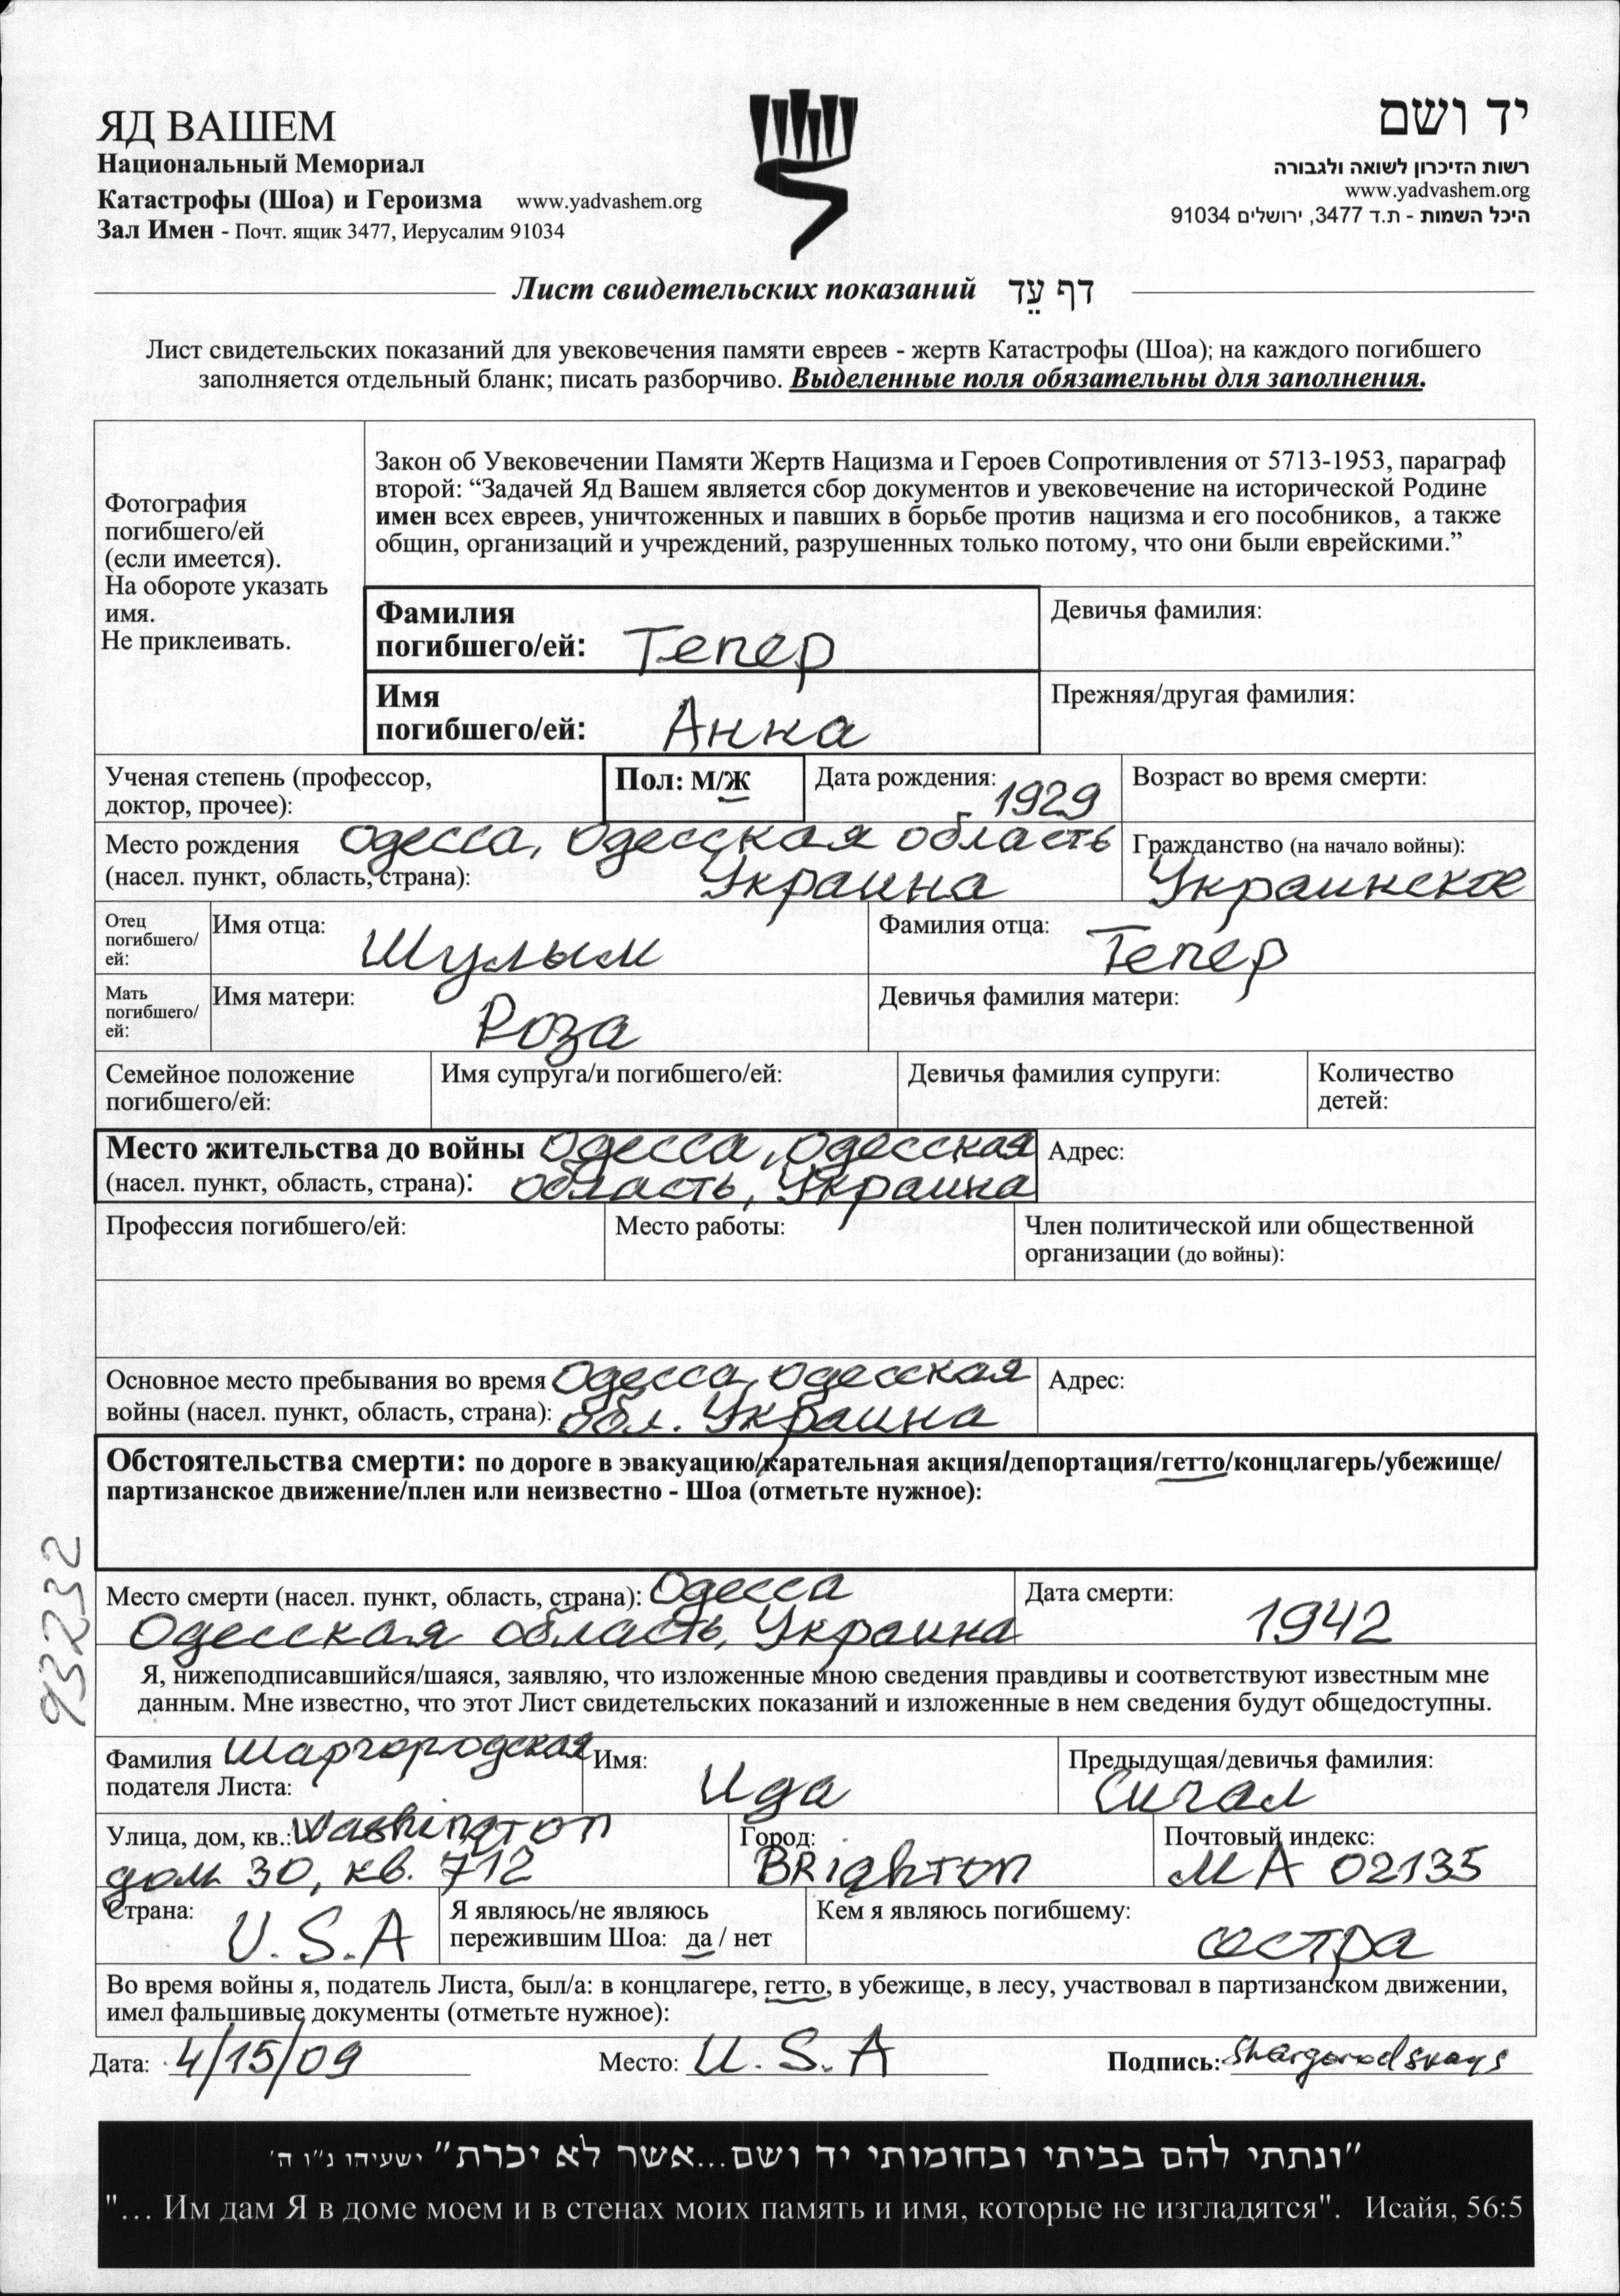 ЯД ВАШЕМ
Национальный Мемориал
Катастрофы (Шоа) и Героизма www.yadvashem.org
Зал Имен - Почт. ящик 3477, Иерусалим 91034
יד ושם
רשות הזיכרון לשואה ולגבורה
www.yadvashem.org
היכל השמות - ת.ד 3477, ירושלים 91034
Лист свидетельских показаний דף עֵד
Лист свидетельских показаний для увековечения памяти евреев - жертв Катастрофы (Шоа); на каждого погибшего
заполняется отдельный бланк; писать разборчиво. Выделенные поля обязательны для заполнения.
Фотография
погибшего/ей
(если имеется).
На обороте указать
имя.
Не приклеивать.
Закон об Увековечении Памяти Жертв Нацизма и Героев Сопротивления от 5713-1953, параграф
второй: “Задачей Яд Вашем является сбор документов и увековечение на исторической Родине
имен всех евреев, уничтоженных и павших в борьбе против нацизма и его пособников, а также
общин, организаций и учреждений, разрушенных только потому, что они были еврейскими.”
Фамилия
погибшего/ей: Тепер
Девичья фамилия:
Имя
погибшего/ей: Анна
Прежняя/другая фамилия:
Ученая степень (профессор,
доктор, прочее):
Пол: М/Ж
Дата рождения: 1929
Возраст во время смерти:
Место рождения Одесса, Одесская область
(насел. пункт, область, страна): Украина
Гражданство (на начало войны):
Украинское
Отец
погибшего/
ей:
Имя отца: Шулым
Фамилия отца: Тепер
Мать
погибшего/
ей:
Имя матери: Роза
Девичья фамилия матери:
Семейное положение
погибшего/ей:
Имя супруга/и погибшего/ей:
Девичья фамилия супруги:
Количество
детей:
Место жительства до войны Одесса, Одесская
(насел. пункт, область, страна): область, Украина
Адрес:
Профессия погибшего/ей:
Место работы:
Член политической или общественной
организации (до войны):
Основное место пребывания во время Одесса, Одесская
войны (насел. пункт, область, страна): обл. Украина
Адрес:
Обстоятельства смерти: по дороге в эвакуацию/карательная акция/депортация/гетто/концлагерь/убежище/
партизанское движение/плен или неизвестно - Шоа (отметьте нужное):
93232
Место смерти (насел. пункт, область, страна): Одесса
Одесская область, Украина
Дата смерти:
1942
Я, нижеподписавшийся/шаяся, заявляю, что изложенные мною сведения правдивы и соответствуют известным мне
данным. Мне известно, что этот Лист свидетельских показаний и изложенные в нем сведения будут общедоступны.
Фамилия Шаргородская
податeля Листа:
Имя: Ида
Предыдущая/девичья фамилия:
Сигал
Улица, дом, кв.: Washington
дом 30, кв. 712
Город:
BRighton
Почтовый индекс:
MA 02135
Страна: U.S.A
Я являюсь/не являюсь
пережившим Шоа: да / нет
Кем я являюсь погибшему:
сестра
Во время войны я, податель Листа, был/а: в концлагере, гетто, в убежище, в лесу, участвовал в партизанском движении,
имел фальшивые документы (отметьте нужное):
Дата: 4/15/09 Место: U.S.A Подпись: Shargorodskaya
"ונתתי להם בביתי ובחומותי יד ושם...אשר לא יכרת" ישעיהו נ"ו ה'
"... Им дам Я в доме моем и в стенах моих память и имя, которые не изгладятся". Исайя, 56:5